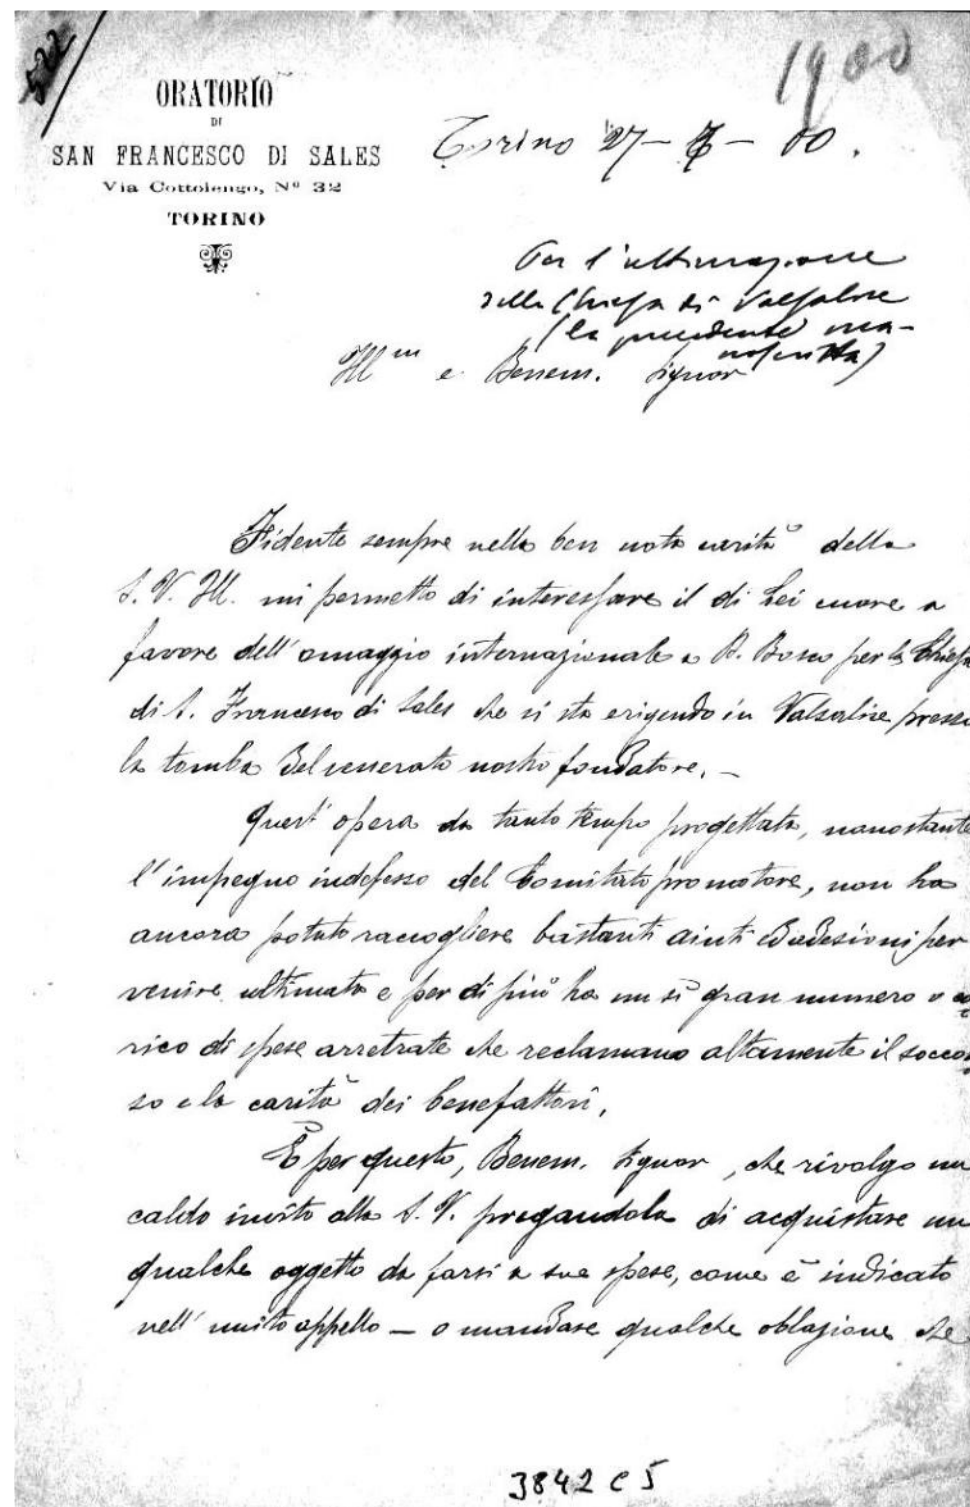 522
1900
ORATORIO
DI
SAN FRANCESCO DI SALES
Via Cottolengo, Nº 32
TORINO
Torino 27 - 7 - 00.
Per l'ultimazione
della Chiesa di Valsalice
(la precedente ma-
noscritta)
Ill.m e Benem. Signor
Fidente sempre nella ben nota carità della
S. V. Ill. mi permetto di interessare il di Lei cuore a
favore dell'omaggio internazionale a D. Bosco per la Chiesa
di S. Francesco di Sales che si sta erigendo in Valsalice presso
la tomba del venerato nostro fondatore. -
Quest'opera da tanto tempo progettata, nonostante
l'impegno indefesso del Comitato promotore, non ha
ancora potuto raccogliere bastanti aiuti ed adesioni per
venire ultimata e per di più ha un sì gran numero o ca
rico di spese arretrate che reclamano altamente il soccor
so e la carità dei benefattori.
È per questo, Benem. Signor, che rivolgo un
caldo invito alla S. V. pregandola di acquistare un
qualche oggetto da farsi a sue spese, come è indicato
nell'unito appello - o mandare qualche oblazione che
3842 C 5